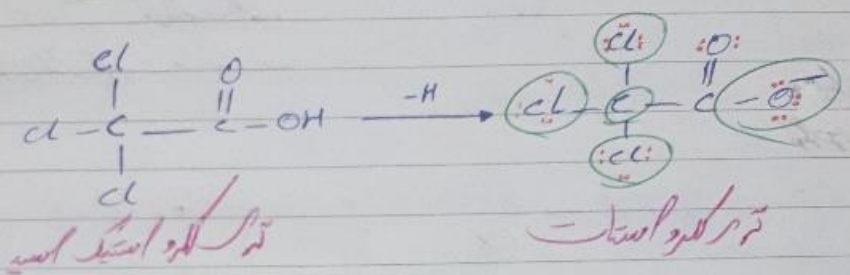 Cl :Cl:
O :O:
Cl – C — C – OH –H :Cl – C — C – O⁻
Cl :Cl:
تری کلرو استیک اسید تری کلرو استات